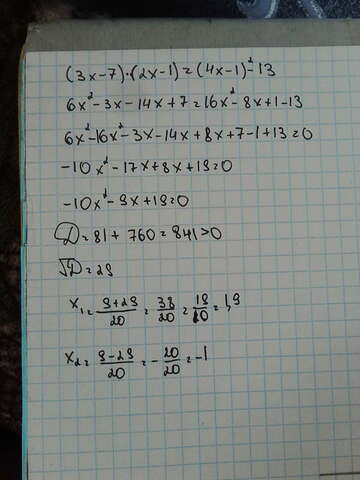 (3x-7)·(2x-1)=(4x-1)²-13
6x²-3x-14x+7=16x²-8x+1-13
6x²-16x²-3x-14x+8x+7-1+13=0
-10x²-17x+8x+19=0
-10x²-9x+19=0
D=81+760=841>0
√D=29
x₁=9+29/20=38/20=19/10=1,9
x₂=9-29/20=-20/20=-1